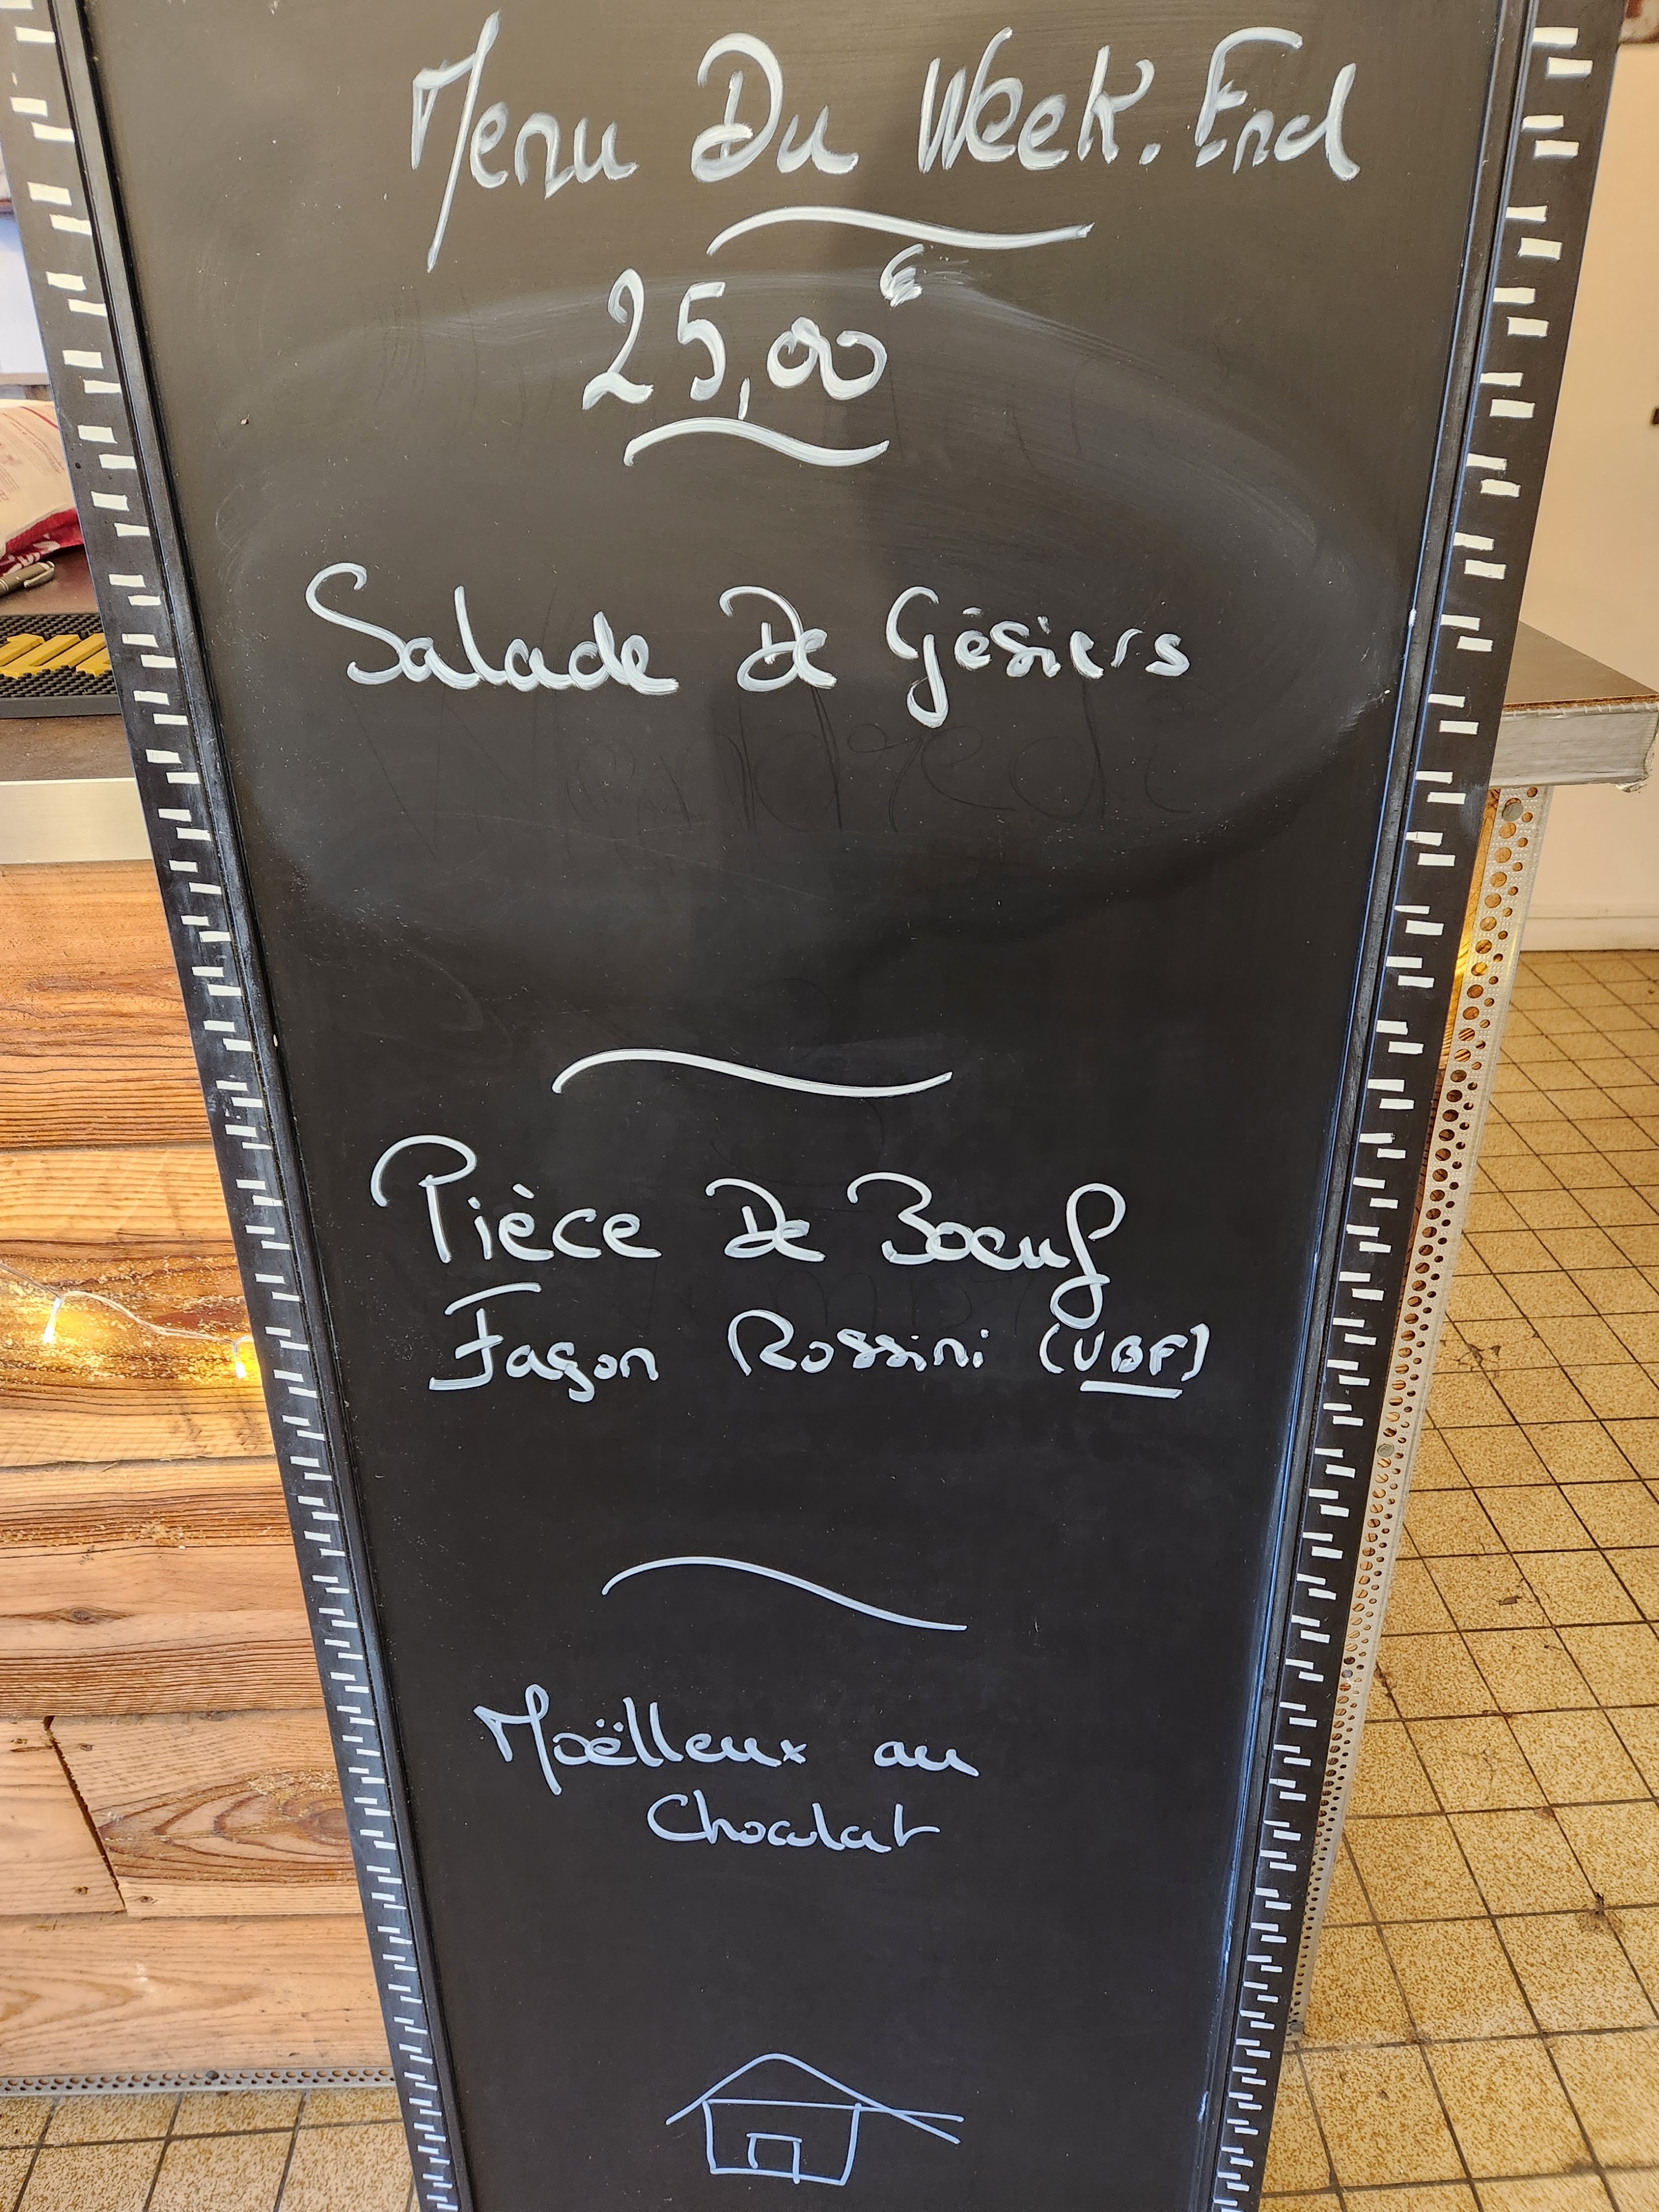 Menu Du Week.End
25,00€
Salade De Gésiers
Vendredi
Pièce De Boeuf
Façon Rossini (VBF)
Moëlleux au
Chocolat